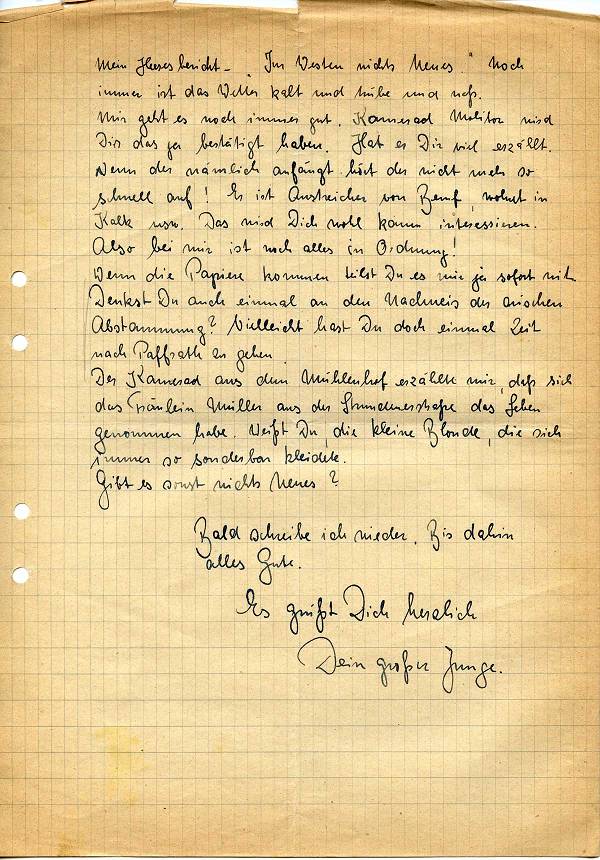 Mein Heeresbericht – "Im Westen nichts Neues." Noch
immer ist das Wetter kalt und trübe und naß.
Mir geht es noch immer gut. Kamerad Molitor wird
Dir das ja bestätigt haben. Hat es Dir viel erzählt.
Wenn der nämlich anfängt hört der nicht mehr so
schnell auf! Er ist Anstreicher von Beruf, wohnt in
Kalk usw. Das wird Dich wohl kaum interessieren.
Also bei mir ist noch alles in Ordnung!
Wenn die Papiere kommen teilst Du es mir ja sofort mit.
Denkst Du auch einmal an den Nachweis der arischen
Abstammung? Vielleicht hast Du doch einmal Zeit
nach Paffrath zu gehen.
Der Kamerad aus dem Mühlenhof erzählte mir, daß sich
das Fräulein Müller aus der Strundenerstraße das Leben
genommen habe. Weißt Du, die kleine Blonde, die sich
immer so sonderbar kleidete.
Gibt es sonst nichts Neues?
Bald schreibe ich wieder. Bis dahin
alles Gute.
Es grüßt Dich herzlich
Dein großer Junge.